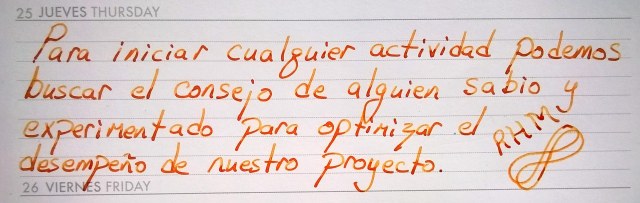 25 JUEVES THURSDAY
Para iniciar cualquier actividad podemos
buscar el consejo de alguien sabio y
experimentado para optimizar el
desempeño de nuestro proyecto.
RHMJ
26 VIERNES FRIDAY